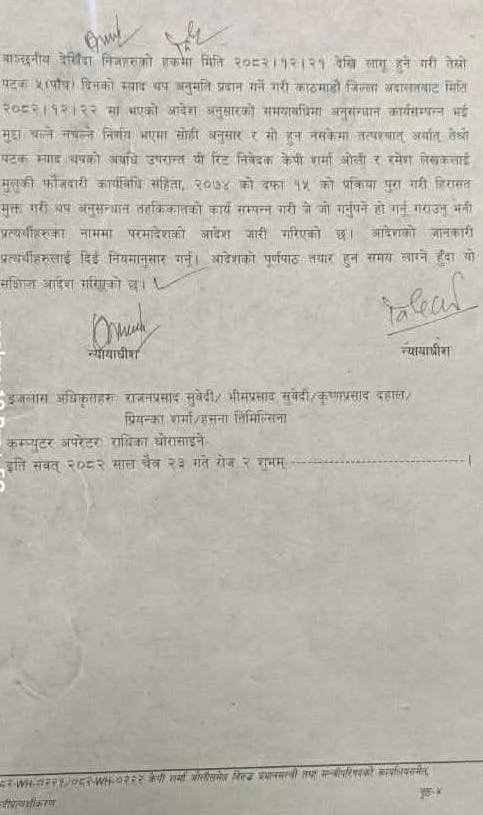 बाञ्छनीय देखिँदा निजहरुको हकमा मिति २०८२।१२।२१ देखि लागू हुने गरी तेस्रो
पटक ५(पाँच) दिनको म्याद थप अनुमति प्रदान गर्ने गरी काठमाडौं जिल्ला अदालतबाट मिति
२०८२।१२।२२ मा भएको आदेश अनुसारको समयावधिमा अनुसन्धान कार्यसम्पन्न भई
मुद्दा चल्ने नचल्ने निर्णय भएमा सोही अनुसार र सो हुन नसकेमा तत्पश्चात् अर्थात् तेस्रो
पटक म्याद थपको अवधि उपरान्त यी रिट निवेदक केपी शर्मा ओली र रमेश लेखकलाई
मुलुकी फौजदारी कार्यविधि संहिता, २०७४ को दफा १५ को प्रक्रिया पुरा गरी हिरासत
मुक्त गरी थप अनुसन्धान तहकिकातको कार्य सम्पन्न गरी जे जो गर्नुपर्ने हो गर्नु गराउनु भनी
प्रत्यर्थीहरुका नाममा परमादेशको आदेश जारी गरिएको छ। आदेशको जानकारी
प्रत्यर्थीहरुलाई दिई नियमानुसार गर्नु। आदेशको पूर्णपाठ तयार हुन समय लाग्ने हुँदा यो
संक्षिप्त आदेश गरिएको छ।
न्यायाधीश
न्यायाधीश
इजलास अधिकृतहरुः राजनप्रसाद सुवेदी/ भीमप्रसाद सुवेदी/कृष्णप्रसाद दहाल/
प्रियन्का शर्मा/हसना तिमिल्सिना
कम्प्युटर अपरेटरः राधिका घोरासाइने
इति संवत् २०८२ साल चैत्र २३ गते रोज २ शुभम् ------------------------------।
०८२-WH-०२२१/०८२-WH-०२२२ केपी शर्मा ओलीसमेत विरुद्ध प्रधानमन्त्री तथा मन्त्रीपरिषदको कार्यालयसमेत,
पृष्ठ-४